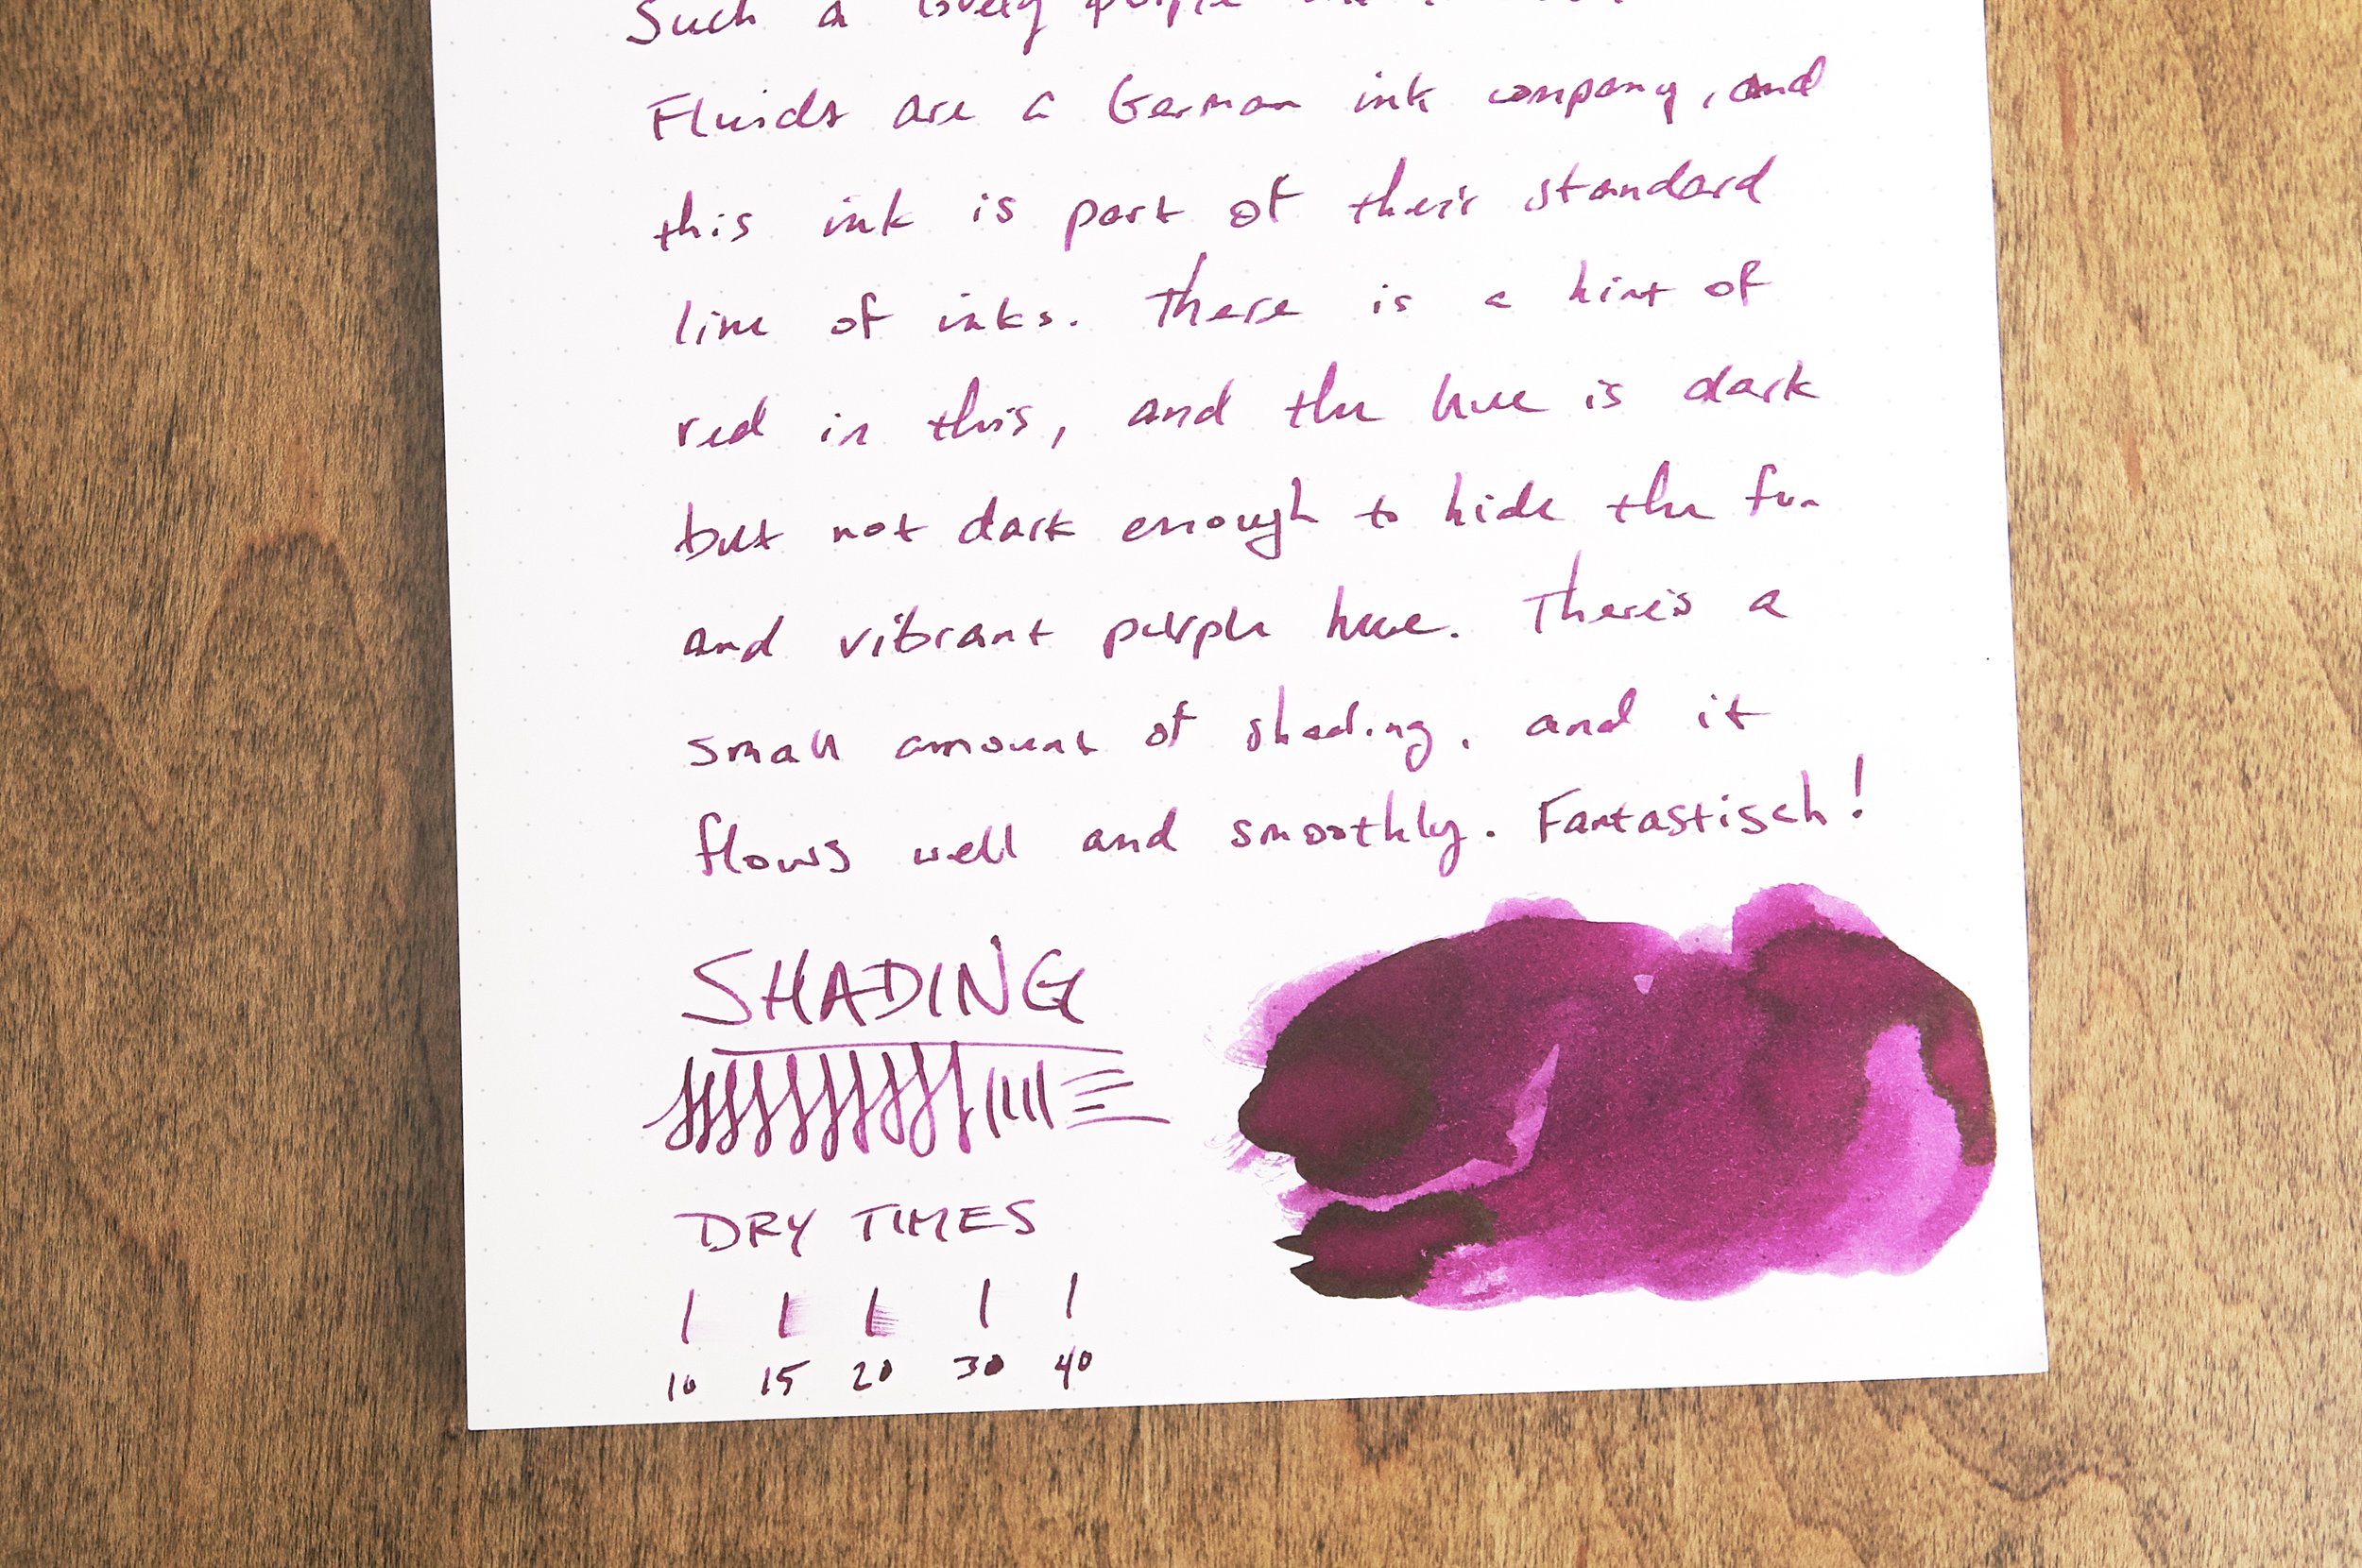 Such a lovely purple
Fluids are a German ink company, and
this ink is part of their standard
line of inks. There is a hint of
red in this, and the hue is dark
but not dark enough to hide the fun
and vibrant purple hue. There's a
small amount of shading, and it
flows well and smoothly. Fantastisch!
SHADING
DRY TIMES
10 15 20 30 40